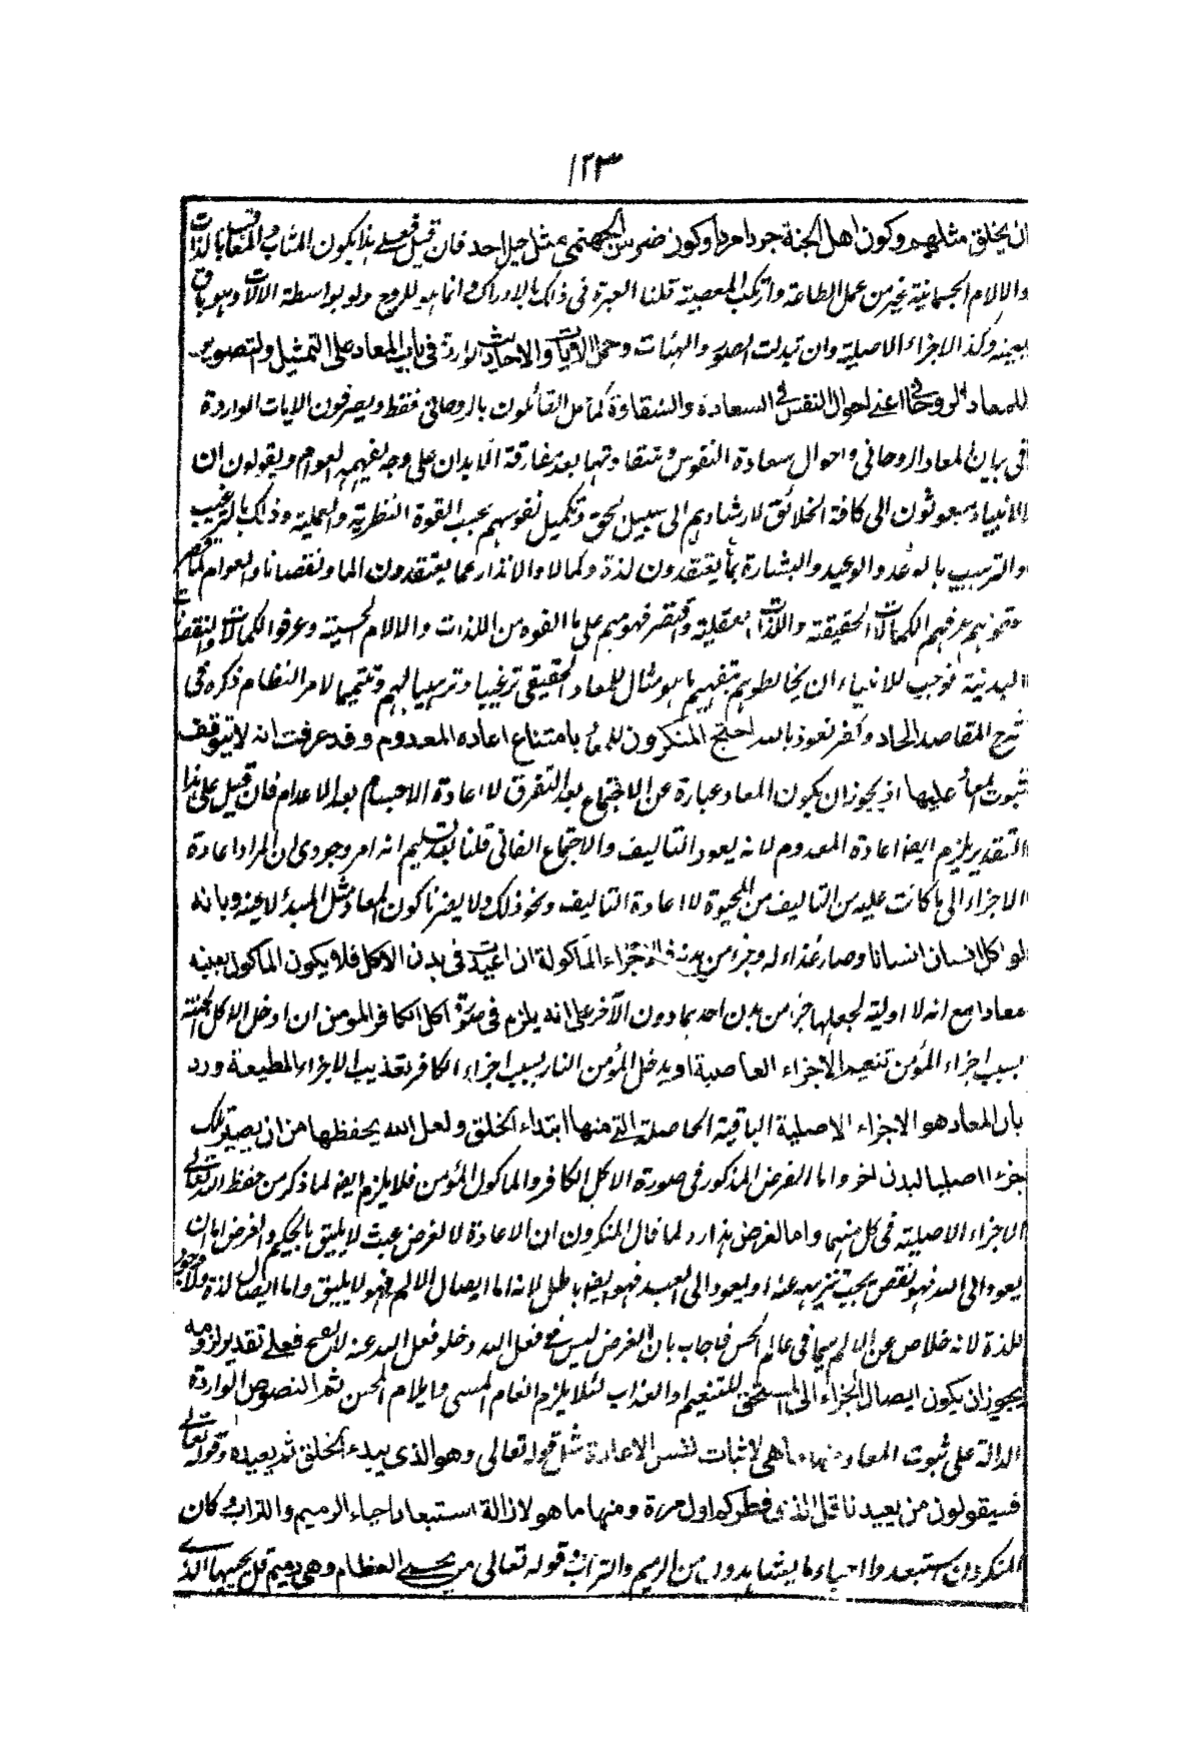 ١٢٣
ان يخلق مثلهم وكون اهل الجنة جردا مردا وكون ضرس الجهنمي مثل جبل احد فان قيل فعلى هذا يكون المثاب والمعاقب باللذات
والالام الجسمانية غير من عمل الطاعة وارتكب المعصية قلنا العبرة فى ذلك بالادراك وانما هو للروح ولو بواسطة الالات وهو باق
بعينه وكذا الاجزاء الاصلية وان تبدلت الصور والهيئات وحمل الايات والاحاديث الواردة فى باب المعاد على التمثيل والتصوير
للمعاد الروحانى اعنى احوال النفس فى السعادة والشقاوة كما حمل القائلون بالروحانى فقط ويصرفون الايات الواردة
فى بيان المعاد الروحانى واحوال سعادة النفوس وشقاوتها بعد مفارقة الابدان على وجه يفهمه العوام ويقولون ان
الانبياء مبعوثون الى كافة الخلائق لارشادهم الى سبيل الحق وتكميل نفوسهم بحسب القوة النظرية والعملية وذلك بالترغيب
والترهيب بالوعد والوعيد والبشارة بما يعتقدون لذة وكمالا والانذار عما يعتقدون الما ونقصانا والعوام
عرفهم الكمالات الحقيقية واللذات العقلية وقتصر فهومهم على ما الفوه من اللذات والالام الحسية وعرفوا الكمالات والنقصانات
البدنية فوجب للانبياء ان يخاطبوهم بتفهيم ما هو مثال للمعاد الحقيقى ترغيبا وترهيبا لهم وتتميما لامر النظام ذكره فى
شرح المقاصد الحاد وكفر نعوذ بالله احتج المنكرون للمعاد بامتناع اعاده المعدوم وقد عرفت انه لا يتوقف
ثبوت المعاد عليها اذ يجوز ان يكون المعاد عبارة عن الاجتماع بعد التفرق لا اعادة الاجسام بعد الاعدام فان قيل على هذا
التقدير يلزم ايضا اعادة المعدوم لانه يعود التاليف والاجتماع الفانى قلنا بعد تسليم انه امر وجودى ان المراد اعادة
الاجزاء الى ما كانت عليه من التاليف من الحيوة لا اعادة التاليف ونحو ذلك ولا يضرنا كون المعاد مثل المبدء لا عينه وبانه
لو اكل انسان انسانا وصار غذاء له وجزء من بدنه فالاجزاء المأكولة ان اعيدت فى بدن الاكل فلا يكون الماكول بعينه
معادا مع انه لا اولية لجعلها جزأ من بدن احدهما دون الآخر على انه يلزم فى صورة اكل الكافر المومن ان ادخل الاكل الجنة
بسبب اجزاء المؤمن تنعيم الاجزاء العاصية او يدخل المؤمن النار بسبب اجزاء الكافر تعذيب الاجزاء المطيعة ورد
بان المعاد هو الاجزاء الاصلية الباقية الحاصلة التى منها ابتداء الخلق ولعل الله يحفظها من ان يصير تلك
جزءا اصليا لبدن اخر واما الفرض المذكور فى صورة الاكل الكافر والماكول المؤمن فلا يلزم ايضا لما ذكر من حفظ الله تعالى
الاجزاء الاصلية فى كل منهما واما الغرض هذا رد لما قال المنكرون ان الاعادة لا لغرض عبث لا يليق بالحكيم والغرض اما ان
يعود الى الله فهو نقص يجب تنزيهه عنه او يعود الى العبد فهو ايضا باطل لانه اما ايصال الالم فهو لا يليق واما ايصال لذة ولا وجود
للذة لانه خلاص عن الالم سيما فى عالم الحس فاجاب بان الغرض ليس فى فعل الله وخلو فعل الله عنه لا يقبح فعلى تقدير لزومه
يجوز ان يكون ايصال الجزاء الى المستحق للتنعيم او العذاب لئلا يلزم انعام المسى وايلام المحسن ثم النصوص الواردة
الدالة على ثبوت المعاد منها ما هى لاثبات نفس الاعادة نحو قوله تعالى وهو الذى يبدء الخلق ثم يعيده وقوله تعالى
فسيقولون من يعيدنا قل الذى فطركم اول مرة ومنها ما هو لازالة استبعاد احياء الرميم والتراب كان
المنكرون يستبعدوا احياء ما يشاهدون من الرميم والتراب وقوله تعالى من يحيى العظام وهى رميم قل يحييها الذى